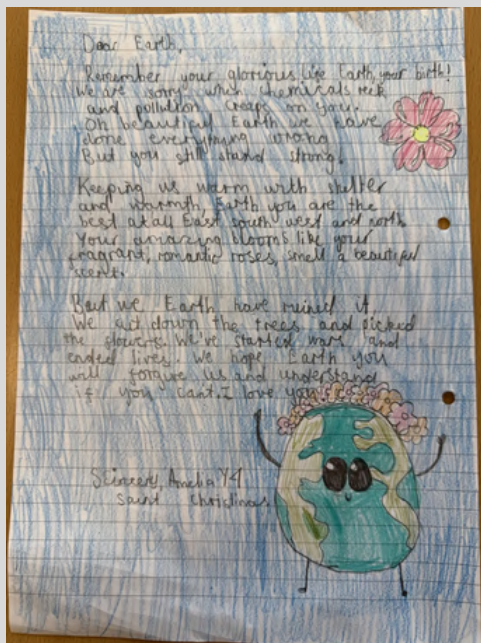 Dear Earth,
Remember your glorious life Earth, your birth!
We are sorry when chemicals reek
and pollution creeps on you.
Oh beautiful Earth we have
done everything wrong
But you still stand strong.
Keeping us warm with shelter
and warmth, Earth you are the
best at all East south west and north
Your amazing blooms like your
fragrant, romantic roses, smell a beautiful
scent.
But we Earth have ruined it.
We cut down the trees and picked
the flowers. We've started wars and
ended lives. We hope Earth you
will forgive us and understand
if you can't. I love you
Scincerly, Amelia Y4
Saint Christinas